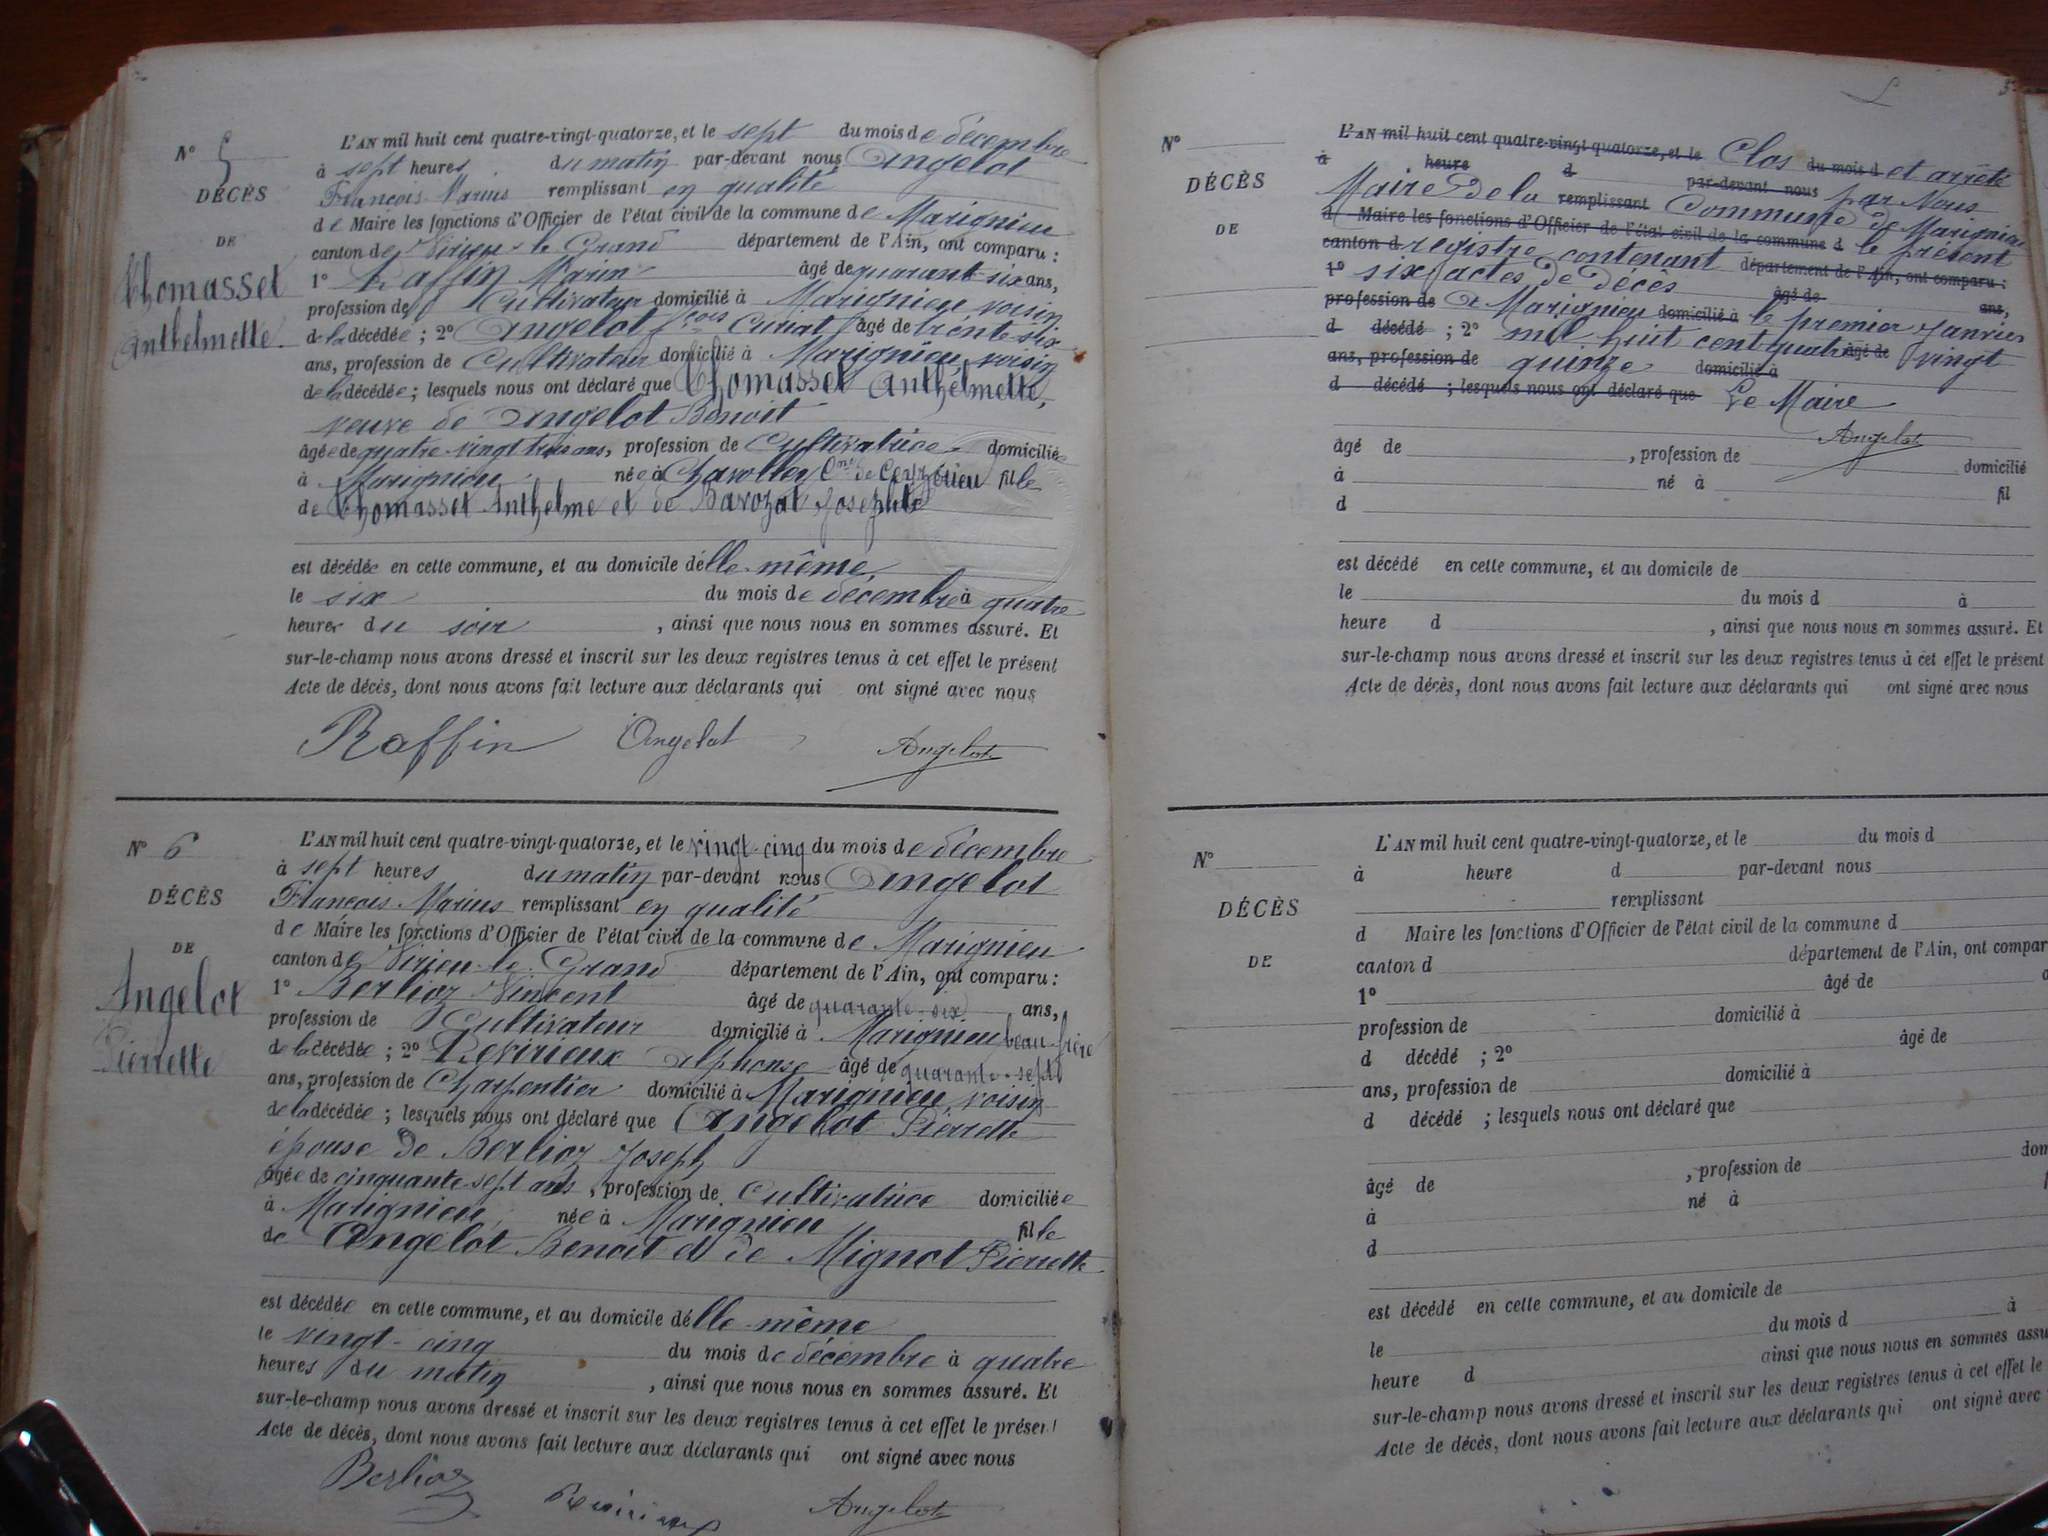 N° 5
DÉCÈS
DE
Thomasset
Anthelmette
L'AN mil huit cent quatre-vingt-quatorze, et le sept du mois de décembre
à sept heures du matin par-devant nous Angelot
François Marius remplissant en qualité
de Maire les fonctions d'Officier de l'état civil de la commune de Marignieu
canton de Virieu-le-Grand département de l'Ain, ont comparu :
1° Raffin Marin âgé de quarante-six ans,
profession de Cultivateur domicilié à Marignieu voisin
de la décédée ; 2° Angelot fçois Curiat âgé de trente-six
ans, profession de Cultivateur domicilié à Marignieu, voisin
de la décédée ; lesquels nous ont déclaré que Thomasset Anthelmette,
veuve de Angelot Benoit
âgée de quatre-vingt trois ans, profession de Cultivatrice domiciliée
à Marignieu née à Chavolley Cne de Ceyzérieu fille
de Thomasset Anthelme et de Bavozat Josephte
est décédée en cette commune, et au domicile d'elle-même,
le six du mois de décembre à quatre
heures du soir , ainsi que nous nous en sommes assuré. Et
sur-le-champ nous avons dressé et inscrit sur les deux registres tenus à cet effet le présent
Acte de décès, dont nous avons fait lecture aux déclarants qui ont signé avec nous
Raffin Angelot Angelot
N° 6
DÉCÈS
DE
Angelot
Pierrette
L'AN mil huit cent quatre-vingt-quatorze, et le vingt-cinq du mois de décembre
à sept heures du matin par-devant nous Angelot
François Marius remplissant en qualité
de Maire les fonctions d'Officier de l'état civil de la commune de Marignieu
canton de Virieu-le-Grand département de l'Ain, ont comparu :
1° Berlioz Vincent âgé de quarante-six ans,
profession de Cultivateur domicilié à Marignieu beau-frère
de la décédée ; 2° Revirieux Alphonse âgé de quarante-sept
ans, profession de Charpentier domicilié à Marignieu, voisin
de la décédée ; lesquels nous ont déclaré que Angelot Pierrette
épouse de Berlioz Joseph
âgée de cinquante-sept ans , profession de Cultivatrice domiciliée
à Marignieu, née à Marignieu fille
de Angelot Benoit et de Mignot Pierrette
est décédée en cette commune, et au domicile d'elle-même
le vingt-cinq du mois de décembre à quatre
heures du matin , ainsi que nous nous en sommes assuré. Et
sur-le-champ nous avons dressé et inscrit sur les deux registres tenus à cet effet le présent
Acte de décès, dont nous avons fait lecture aux déclarants qui ont signé avec nous
Berlioz Revirieux Angelot
5
N°
DÉCÈS
DE
L'AN mil huit cent quatre-vingt-quatorze, et le Clos du mois d et arrêté
à heure d par-devant nous par Nous
Maire de la remplissant Commune de Marignieu
d Maire les fonctions d'Officier de l'état civil de la commune d le présent
canton d registre contenant département de l'Ain, ont comparu :
1° six actes de décès âgé de ans,
profession de A Marignieu domicilié à le premier Janvier
d décédé ; 2° mil huit cent quatre âgé de vingt
ans, profession de quinze domicilié à
d décédé ; lesquels nous ont déclaré que Le Maire
Angelot
âgé de , profession de domicilié
à né à fil
d
est décédé en cette commune, et au domicile de
le du mois d à
heure d , ainsi que nous nous en sommes assuré. Et
sur-le-champ nous avons dressé et inscrit sur les deux registres tenus à cet effet le présent
Acte de décès, dont nous avons fait lecture aux déclarants qui ont signé avec nous
N°
DÉCÈS
DE
L'AN mil huit cent quatre-vingt-quatorze, et le du mois d
à heure d par-devant nous
remplissant
d Maire les fonctions d'Officier de l'état civil de la commune d
canton d département de l'Ain, ont compar
1° âgé de
profession de domicilié à
d décédé ; 2° âgé de
ans, profession de domicilié à
d décédé ; lesquels nous ont déclaré que
âgé de , profession de dom
à né à
d
est décédé en cette commune, et au domicile de
le du mois d à
heure d ainsi que nous nous en sommes assu
sur-le-champ nous avons dressé et inscrit sur les deux registres tenus à cet effet le
Acte de décès, dont nous avons fait lecture aux déclarants qui ont signé avec